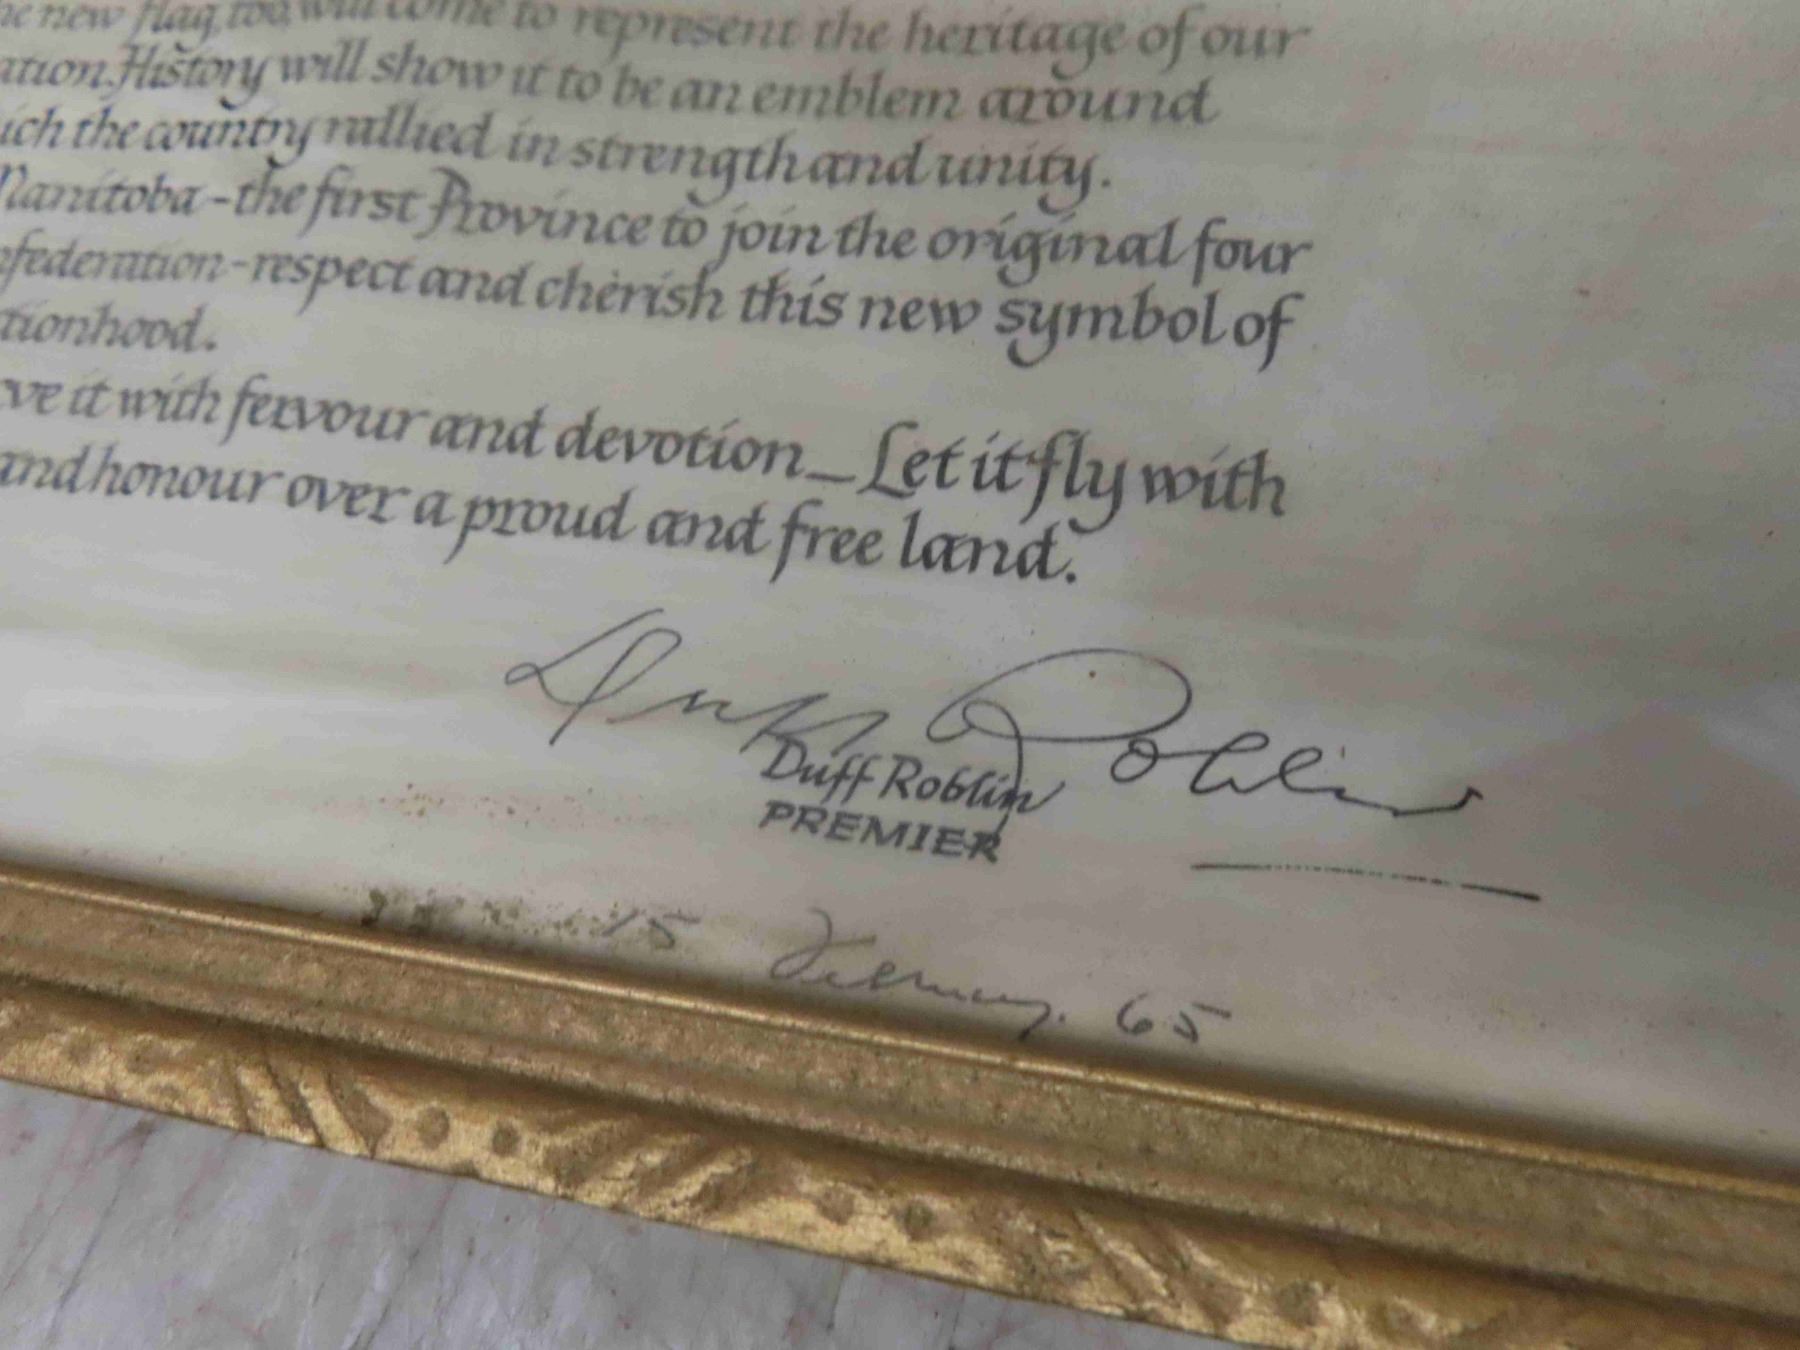 he new flag, too, will come to represent the heritage of our
ation. History will show it to be an emblem around
ich the country rallied in strength and unity.
Manitoba - the first Province to join the original four
nfederation - respect and cherish this new symbol of
tionhood.
ve it with fervour and devotion _ Let it fly with
and honour over a proud and free land.
Duff Roblin
Duff Roblin
PREMIER
15 February. 65